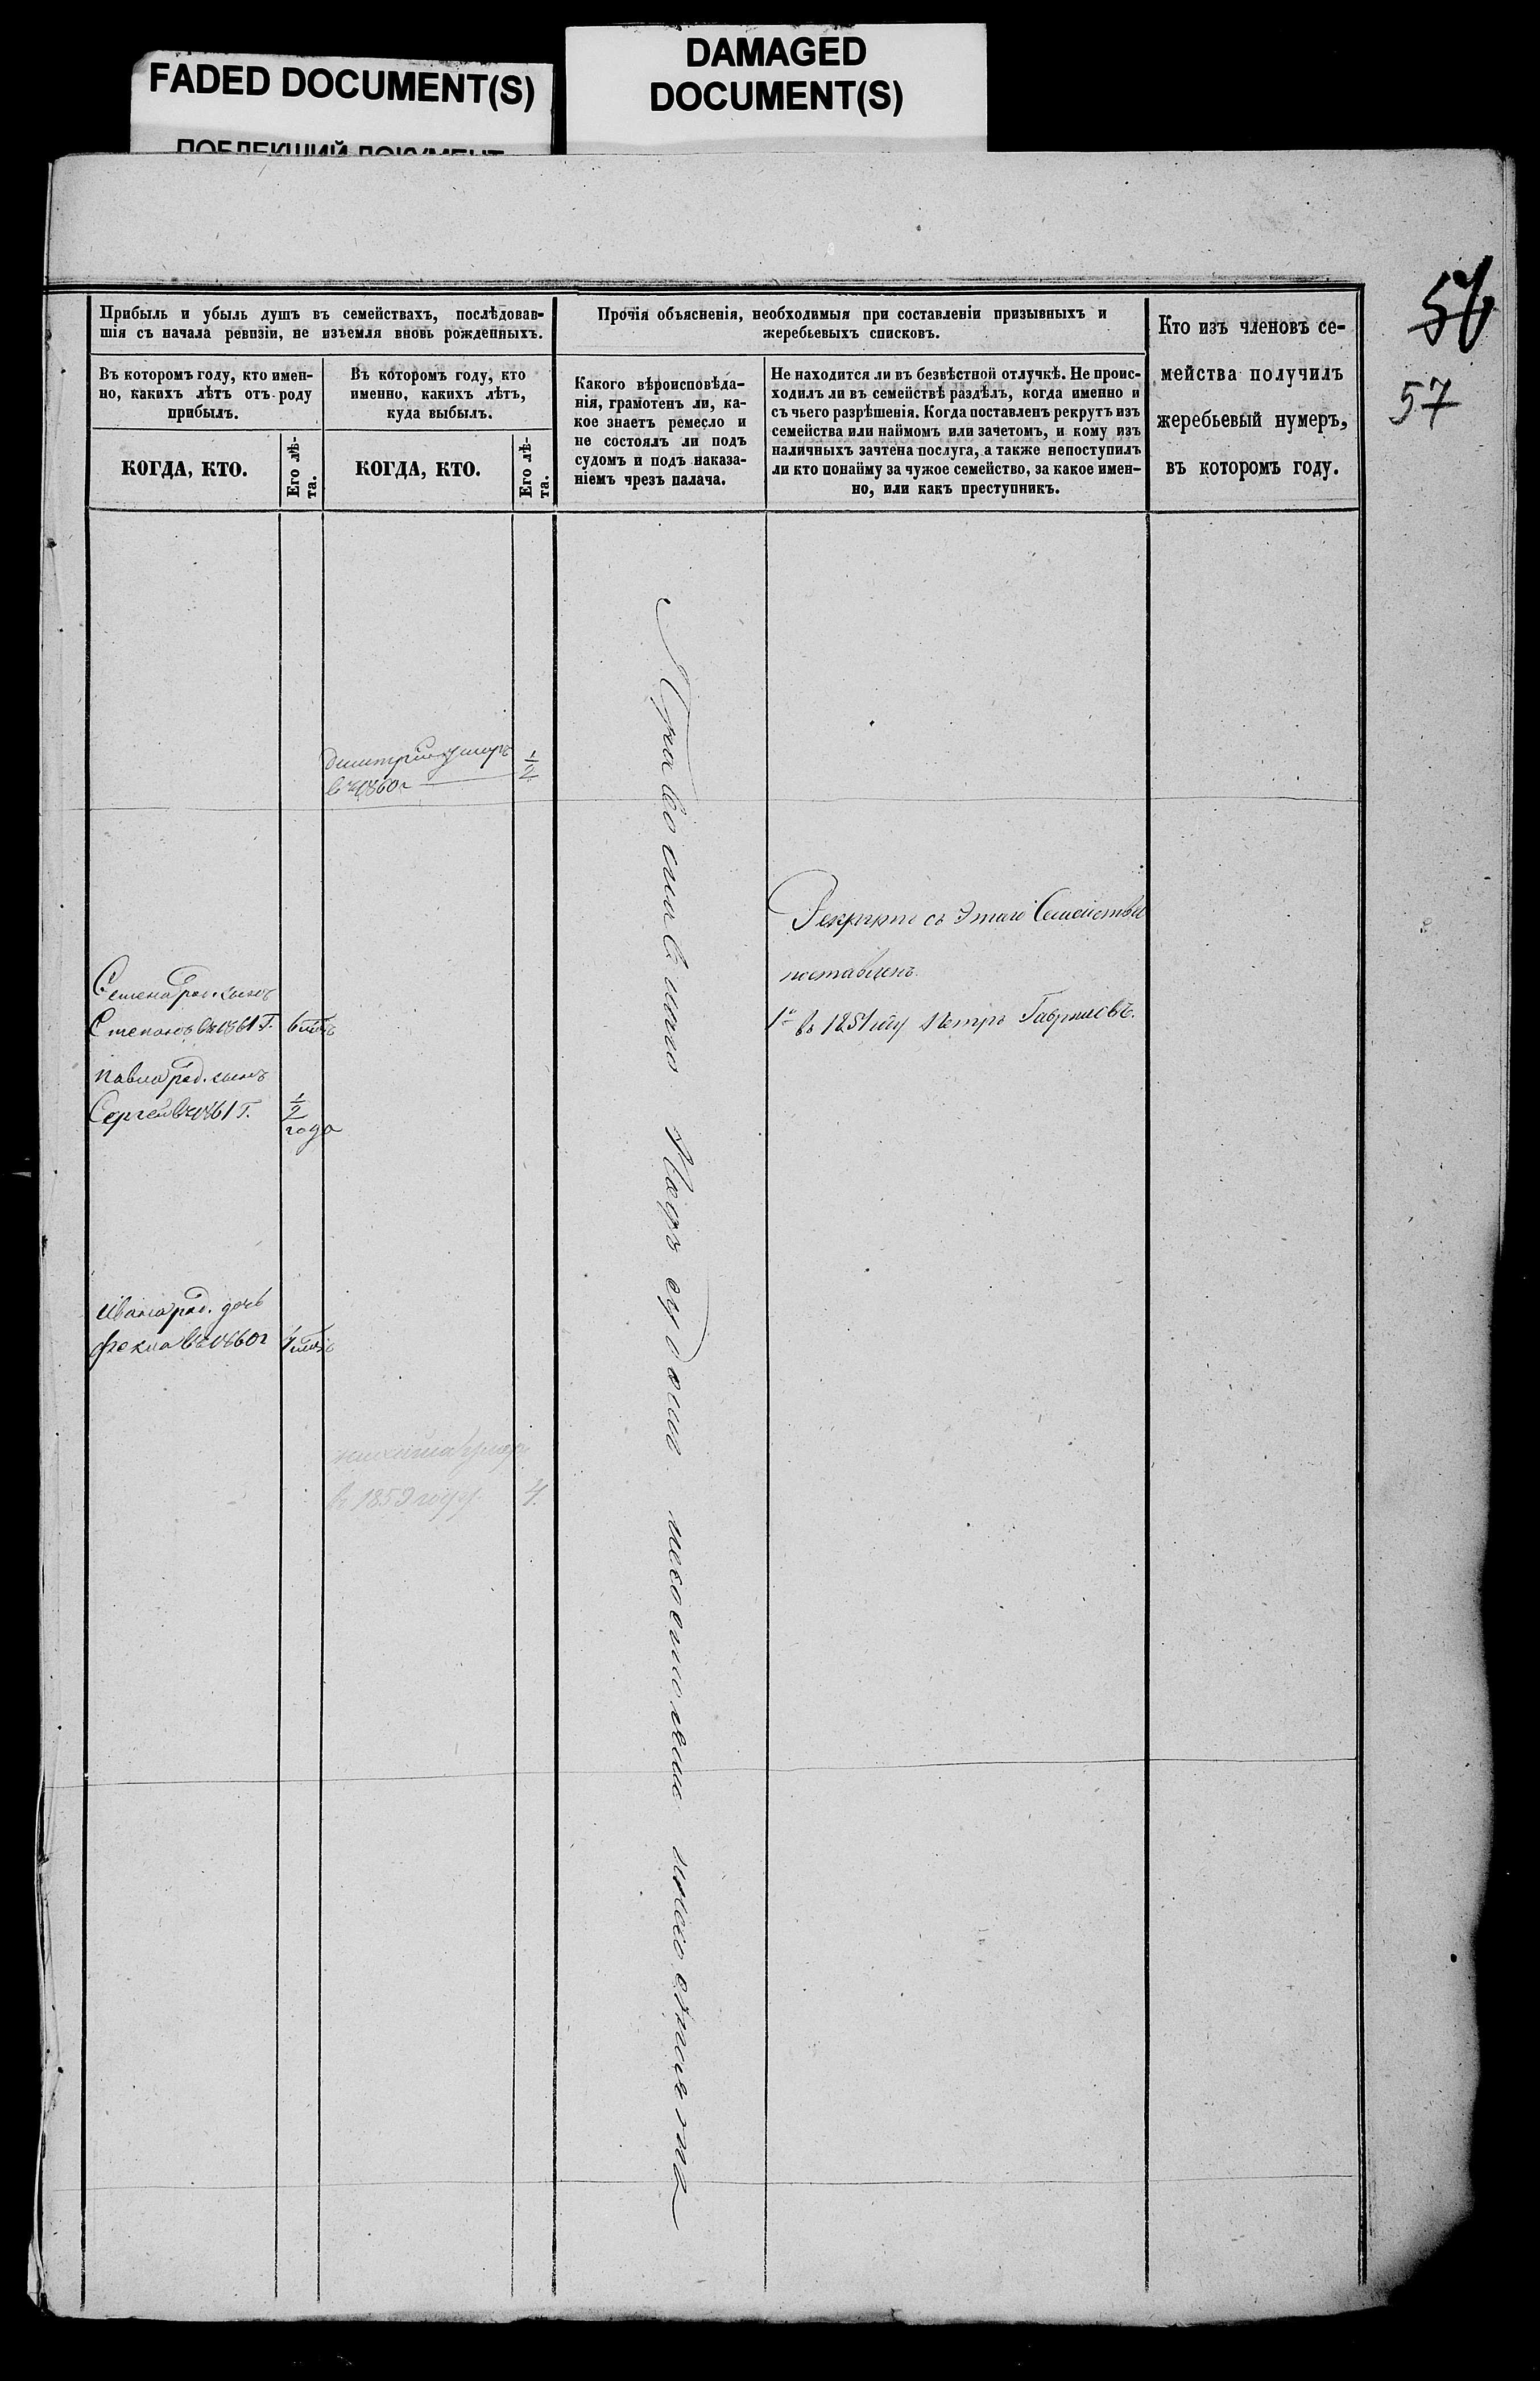 FADED DOCUMENT(S)
DAMAGED
DOCUMENT(S)
ПОБЛЕКШИЙ ДОКУМЕНТ
57
Прибыль и убыль душъ въ семействахъ, послѣдовав-
шія съ начала ревизіи, не изъемля вновь рожденныхъ.
Въ которомъ году, кто имен-
но, какихъ лѣтъ отъ роду
прибылъ.
Въ которомъ году, кто
именно, какихъ лѣтъ,
куда выбылъ.
КОГДА, КТО.
Его лѣ-
та.
КОГДА, КТО.
Его лѣ-
та.
Прочія объясненія, необходимыя при составленіи призывныхъ и
жеребьевыхъ списковъ.
Какого вѣроисповѣда-
нія, грамотенъ ли, ка-
кое знаетъ ремесло и
не состоялъ ли подъ
судомъ и подъ наказа-
ніемъ чрезъ палача.
Не находится ли въ безвѣстной отлучкѣ. Не проис-
ходилъ ли въ семействѣ раздѣлъ, когда именно и
съ чьего разрѣшенія. Когда поставленъ рекрутъ изъ
семейства или наймомъ или зачетомъ, и кому изъ
наличныхъ зачтена послуга, а также непоступилъ
ли кто понайму за чужое семейство, за какое имен-
но, или какъ преступникъ.
Кто изъ членовъ се-
мейства получилъ
жеребьевый нумеръ,
въ которомъ году.
Дмитрій умеръ
въ 1860 г
1/2
Рекрутъ съ этаго Семейства
поставленъ
1й въ 1851 году Петръ Гавриловъ.
Семена род. сынъ
Степанъ въ 1861 Г.
Павла род. сынъ
Сергей въ 1861 г.
1/2
года
Ивана род. дочь
Фекла въ 1860 г
умеръ
въ 1859 году.
4.
Православнаго Подъ судомъ несостояли